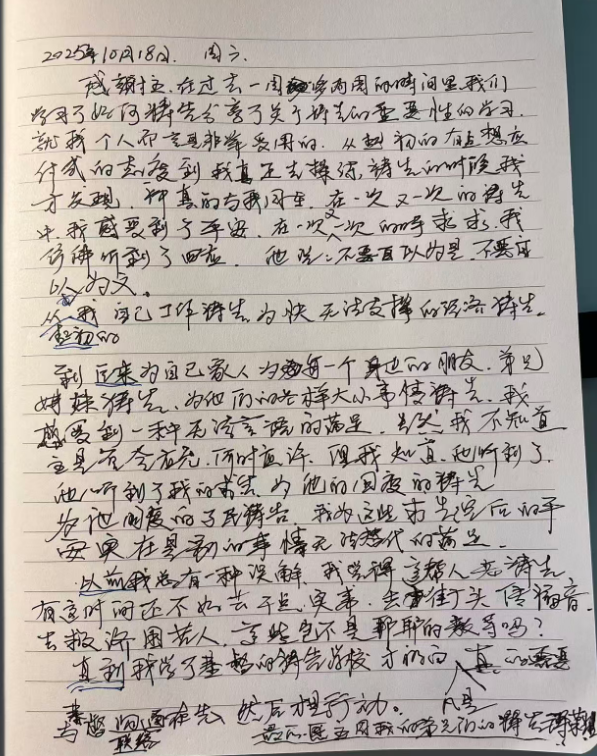 2025年10月18日. 周六.
感谢主, 在过去一周 两周的时间里, 我们
学习了如何祷告分享了关于祷告的重要性的学习.
就我个人而言是非常受用的. 从起初的有点想应
付式的态度到我真正去操练祷告的时候我
才发现, 神真的与我同在. 在一次又一次的祷告
中, 我感受到了平安. 在一次又一次的呼求求, 我
仿佛听到了回应. 他说: 不要自以为是, 不要自
以为义.
从我自己工作祷告, 为快无法支撑的经济祷告.
起初的
到后来为自己家人为每一个身边的朋友, 弟兄
姊妹祷告, 为他们的各样大小事情祷告, 我
感受到一种无法言语的满足. 当然, 我不知道
主是否会应允, 何时应许, 但我知道, 他听到了.
他听到了我的求告, 为他的国度的祷告
为他国度的子民祷告. 我为这些求告完后的平
安实在是别的事情无法替代的满足.
以前我总有一种误解, 我觉得这帮人老祷告,
有这时间还不如去干点实事, 去街头传福音.
去救济困苦人, 这些岂不是耶稣的教导吗?
直到我学了基督的祷告学校才明白 真的需要
凡是
与督 沟通在先, 然后想行动.
联络
最后, 愿主用我们弟兄们的祷告得荣耀